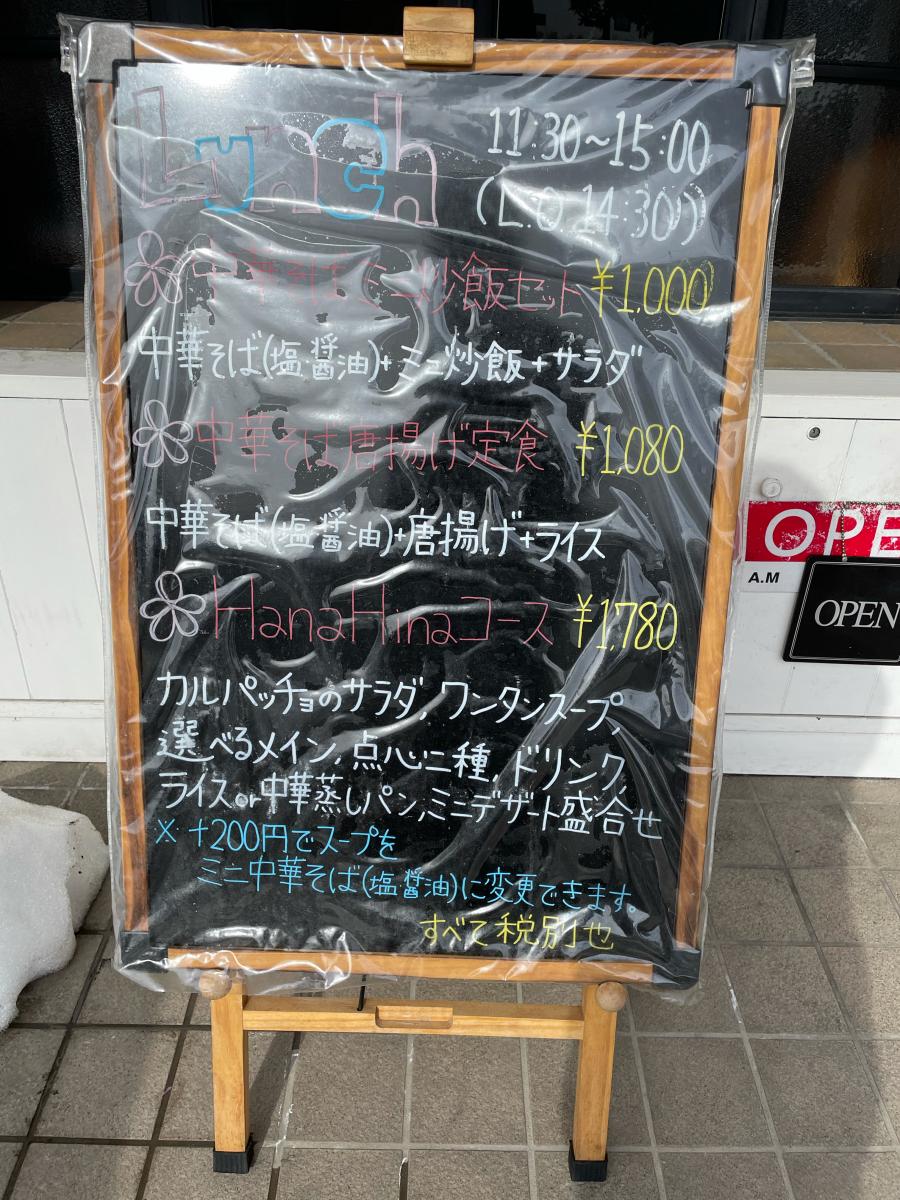 Lunch
11:30~15:00
(L.O 14:30)
中華そばミニ炒飯セット ¥1.000
中華そば(塩・醤油)+ミニ炒飯+サラダ
中華そば唐揚げ定食 ¥1,080
中華そば(塩・醤油)+唐揚げ+ライス
HanaHinaコース ¥1,780
カルパッチョのサラダ,ワンタンスープ,
選べるメイン,点心二種,ドリンク,
ライスor中華蒸しパン,ミニデザート盛合せ
※ +200円でスープを
ミニ中華そば(塩・醤油)に変更できます。
すべて税別也
A.M
OPEN